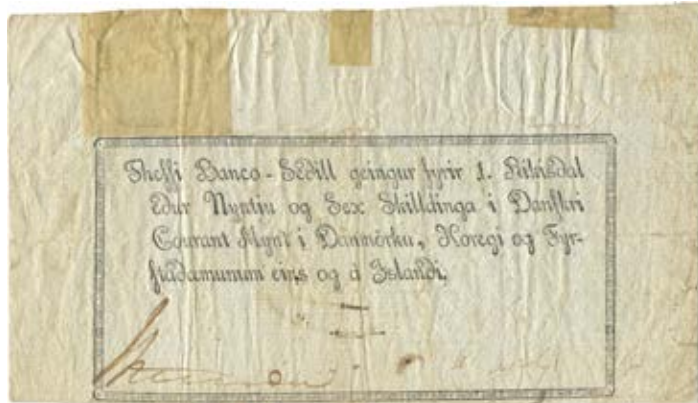 Thessi Banco-Sedill geingur fyrir 1. Rikisdal
Edur Nyntiu og Sex Skilldinga i Danskri
Courant Mynt i Danmörku, Noregi og Fyr-
studæmunum eins og á Islandi.